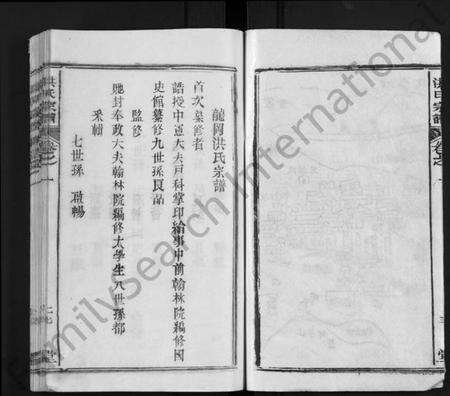 龍岡洪氏宗譜
首次纂修者
誥授中憲大夫戶科掌印給事中前翰林院編修國
史館纂修九世孫良品
監修
貤封奉政大夫翰林院編修太學生八世孫都
采輯
七世孫 殿暢
洪氏宗譜
卷之一
洪氏宗譜
卷之一
堂
FamilySearch International